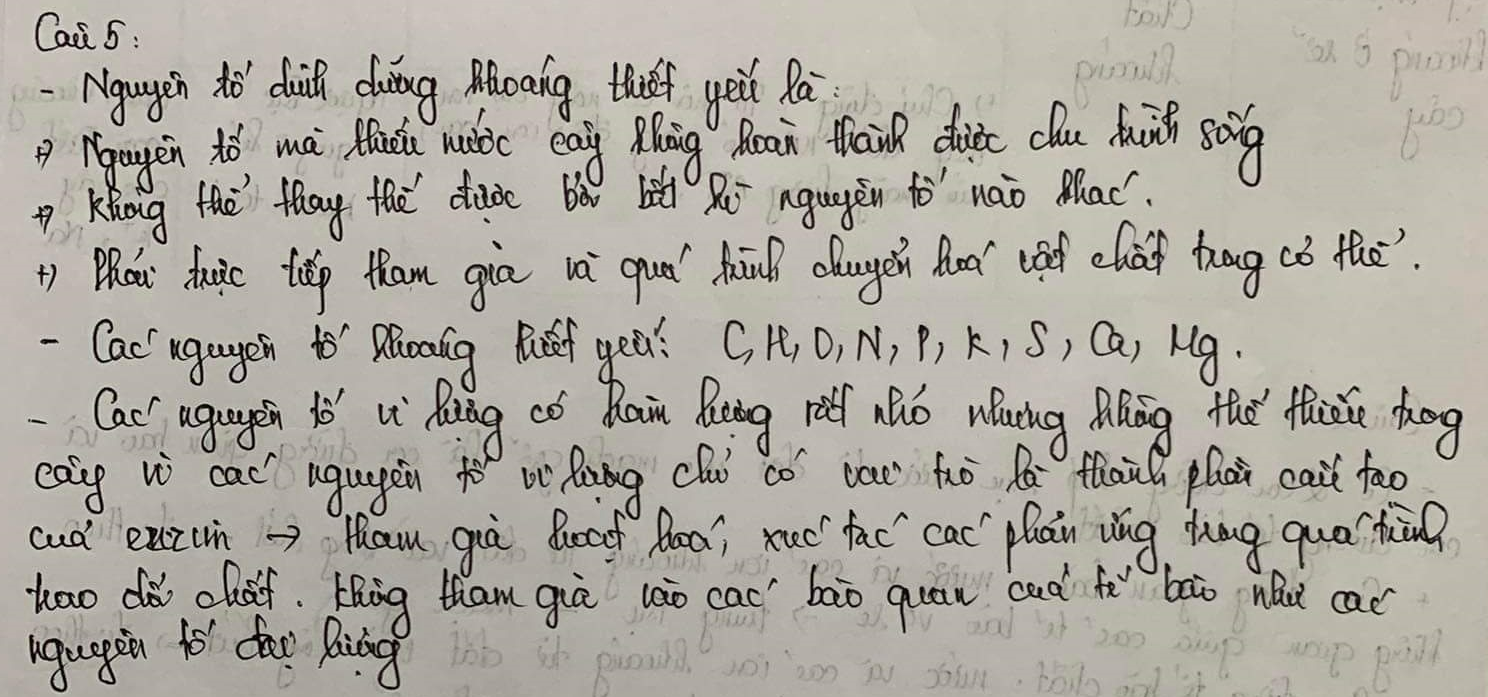 Câu 5:
- Nguyên tố dinh dưỡng khoáng thiết yếu là:
+) Nguyên tố mà thiếu nước cây không hoàn thành được chu trình sống
+) Không thể thay thế được bởi bất kì nguyên tố nào khác.
+) Phải trực tiếp tham gia và quá trình chuyển hoá vật chất trong cơ thể.
- Các nguyên tố khoáng thiết yếu: C, H, O, N, P, K, S, Ca, Mg.
- Các nguyên tố vi lượng có hàm lượng rất nhỏ nhưng không thể thiếu trong
cây vì các nguyên tố vi lượng chỉ có vai trò là thành phần cấu tạo
của enzim → tham gia hoạt hoá, xúc tác các phản ứng trong quá trình
trao đổi chất. Không tham gia vào các bào quan của tế bào như các
nguyên tố đại lượng